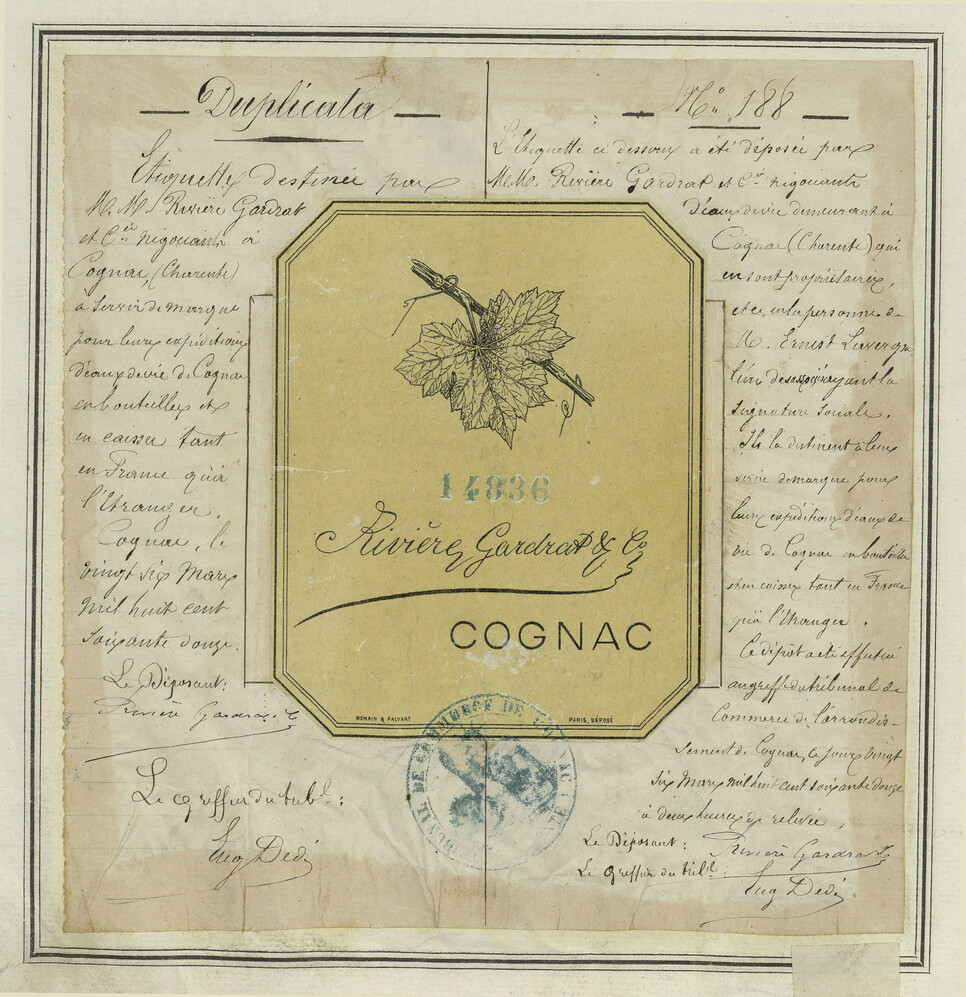 Duplicata
Etiquette destinée par
M.M. Rivière Gardrat
et Cie négociants à
Cognac, (Charente)
à servir de marque
pour leurs expéditions
d'eaux de vie de Cognac
en bouteilles et
en caisses tant
en France qu'à
l'Etranger.
Cognac, le
vingt six Mars
mil huit cent
soixante douze.
Le Déposant:
Rivière Gardrat & C
Le Greffier du tribl:
Eug Dedé
No 188
L'Etiquette ci dessous a été déposée par
M.M. Rivière Gardrat et Cie négociants
d'eaux de vie demeurant à
Cognac (Charente) qui
en sont propriétaires,
et ce, en la personne de
M. Ernest
l'un ayant la
signature sociale.
Ils la destinent à leur
servir de marque pour
leurs expéditions d'eaux de
vie de Cognac en bouteilles
et en caisses tant en France
qu'à l'Etranger.
Ce dépôt a été effectué
au greffe du tribunal de
Commerce de l'arrondis-
sement de Cognac, ce jour vingt
six Mars mil huit cent soixante douze
à deux heures de relevée,
Le Déposant: Rivière Gardrat &
Le Greffier du tribl: Eug Dedé
14836
Rivière, Gardrat & Co
COGNAC
ROMAIN & PALYART
PARIS, DÉPOSÉ
DE COMMERCE DE COGNAC